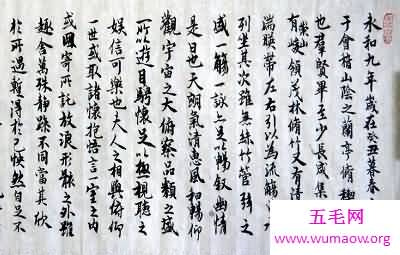 永和九年歲在癸丑暮春
于會稽山陰之蘭亭脩禊
也群賢畢至少長咸集
有崇山峻領茂林脩竹又有清
湍暎帶左右引以為流觴
列坐其次雖無絲竹管弦之
盛一觴一詠亦足以暢叙幽情
是日也天朗氣清惠風和暢仰
觀宇宙之大俯察品類之盛
所以遊目騁懷足以極視聽之
娛信可樂也夫人之相與俯仰
一世或取諸懷抱悟言一室之內
或因寄所託放浪形骸之外雖
趣舍萬殊靜躁不同當其欣
於所遇暫得於己怏然自足不
五毛网
www.wumaow.org